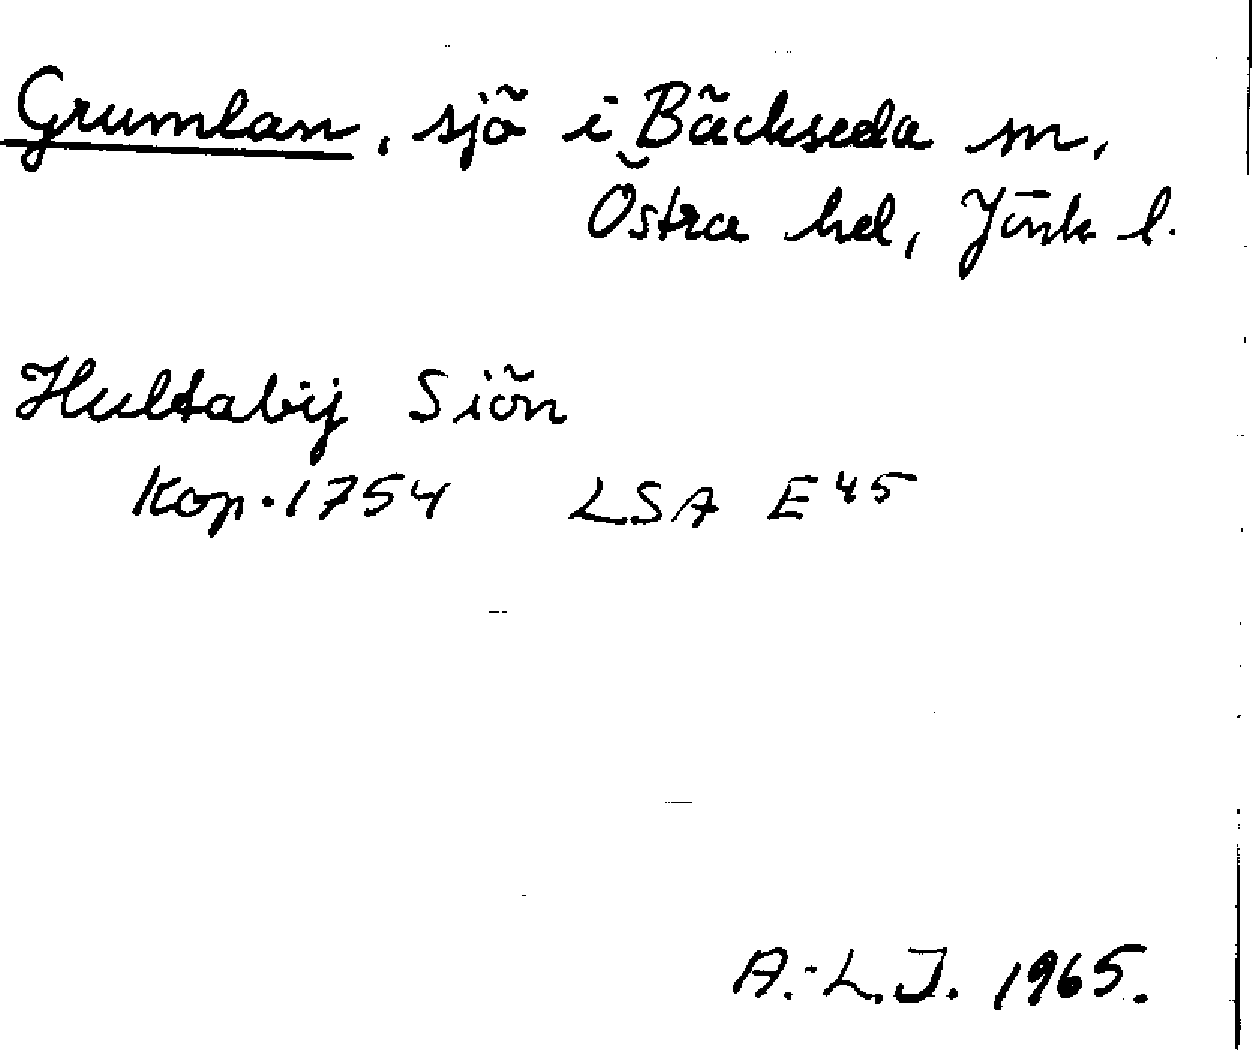 Grumlan, sjö i Bäckseda sn,
Östra hd, Jönk l.
Hultabÿ Siön
Kop. 1754 LSA E 45
A.-L.J. 1965.